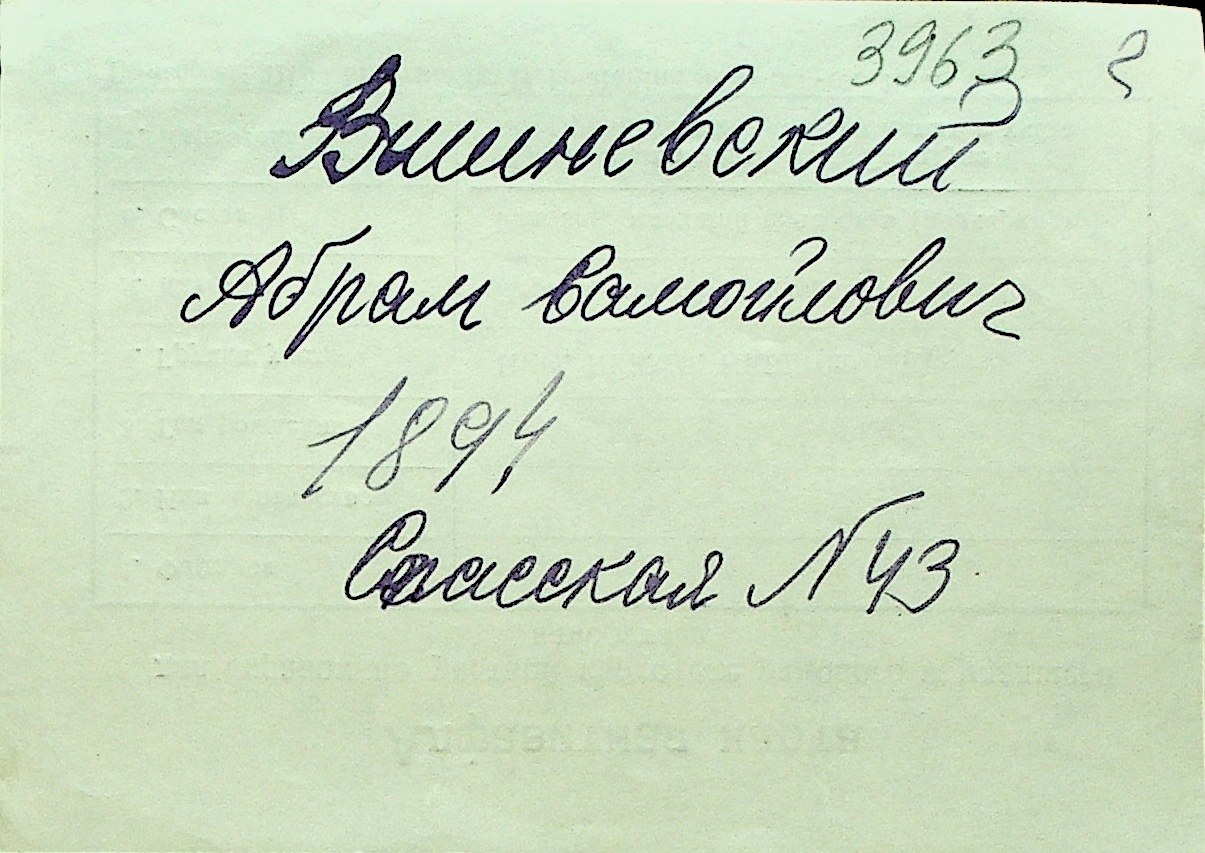 3963 г
Вишневский
Абрам Самойлович
1894
Спасская N 43